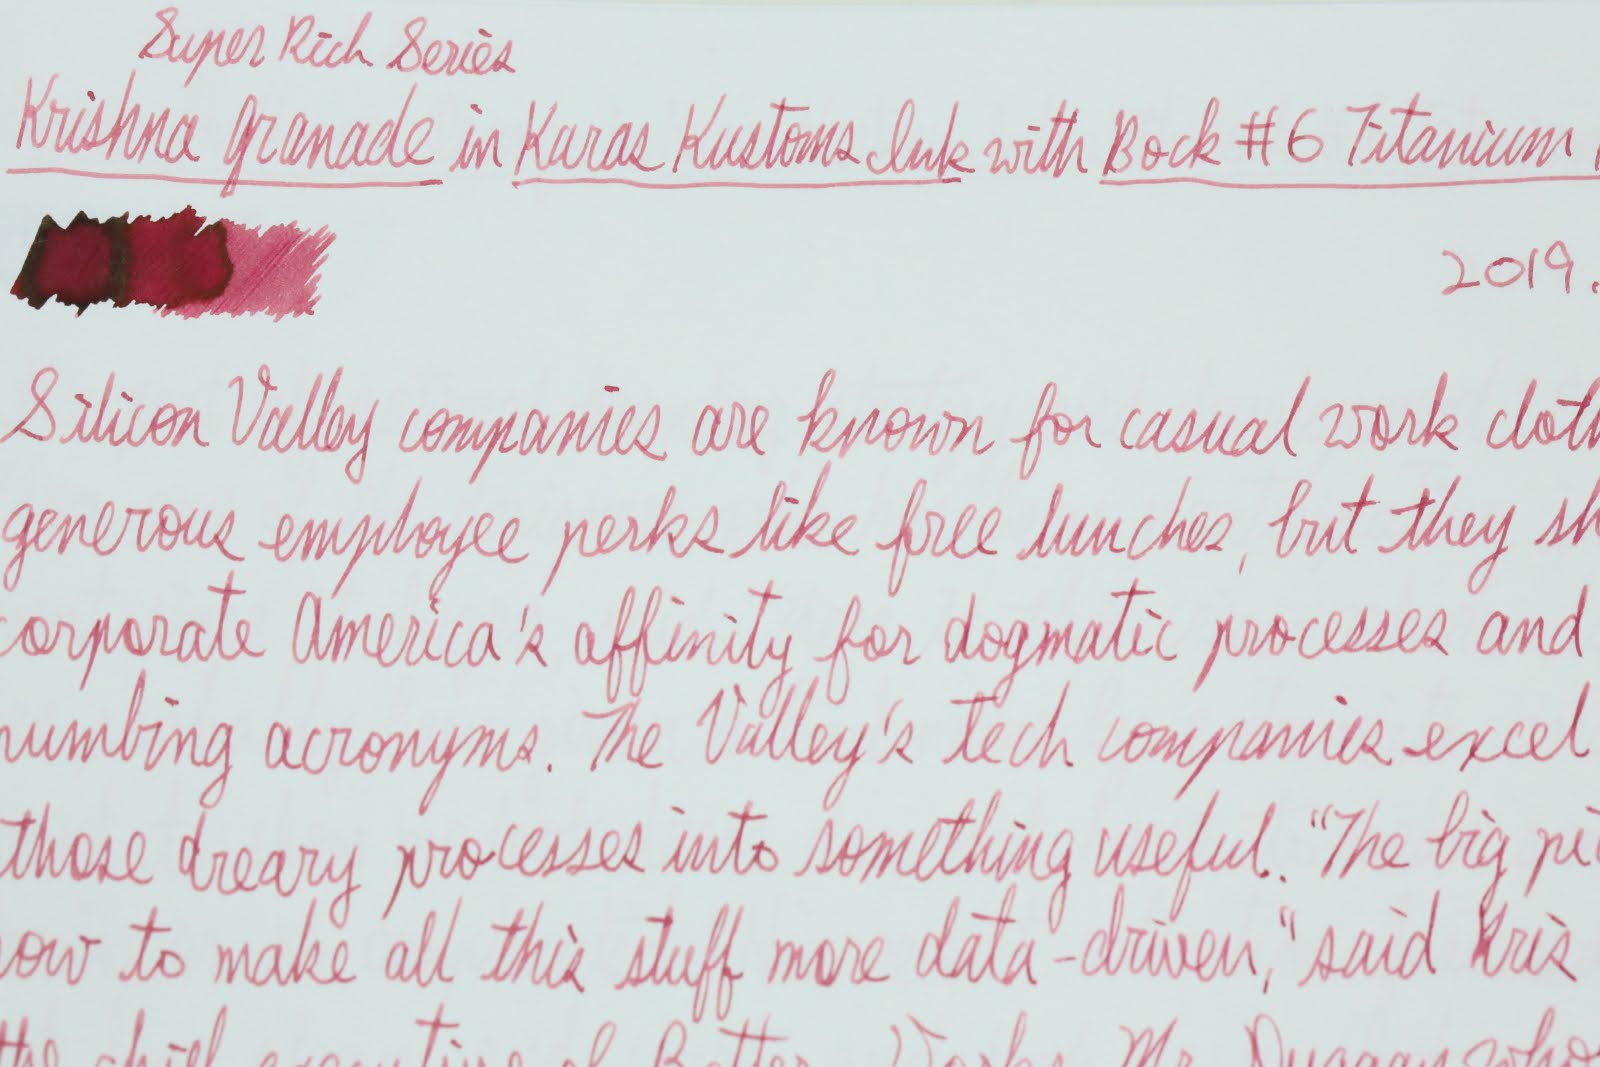 Super Rich Series
Krishna Granade in Karas Kustoms Ink with Bock #6 Titanium
2019.
Silicon Valley companies are known for casual work cloth
generous employee perks like free lunches, but they sh
corporate America's affinity for dogmatic processes and
numbing acronyms. The Valley's tech companies excel
those dreary processes into something useful. "The big pi
how to make all this stuff more data-driven," said Kris
the chief executive of Better Works. Mr. Duggan, who